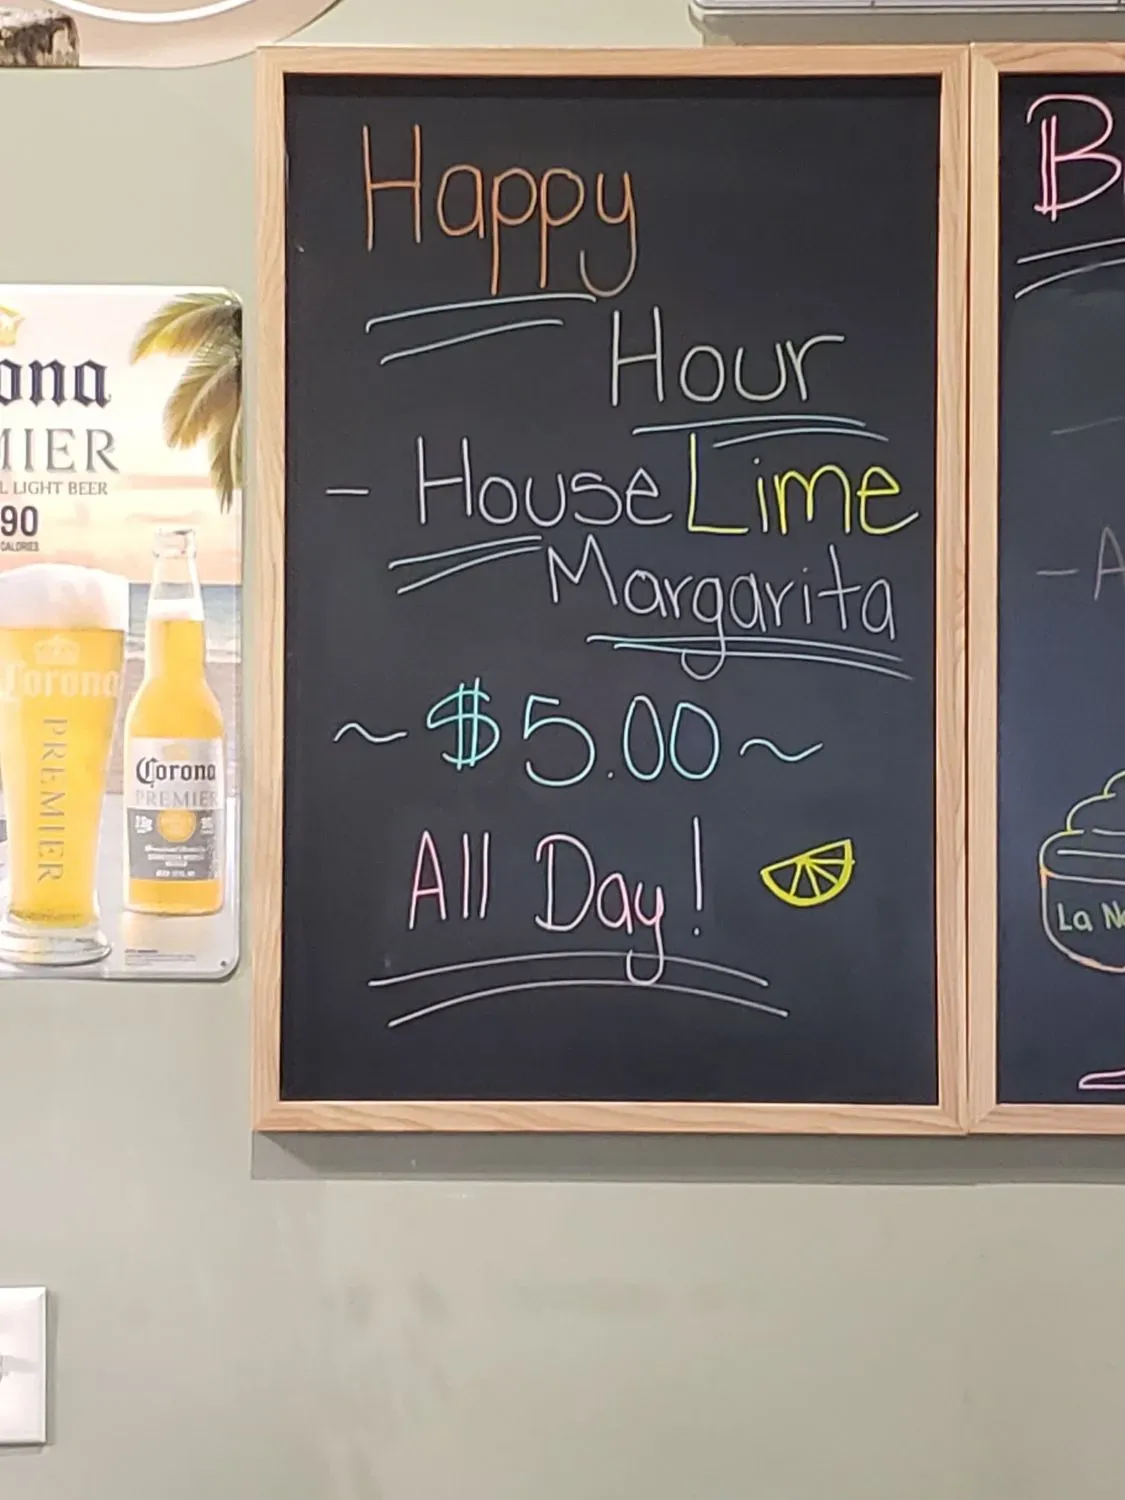 Happy
Hour
- House Lime
Margarita
~ $5.00 ~
All Day!
ona
MIER
L LIGHT BEER
90
CALORIES
Corona
PREMIER
Corona
PREMIER
B
- A
La N